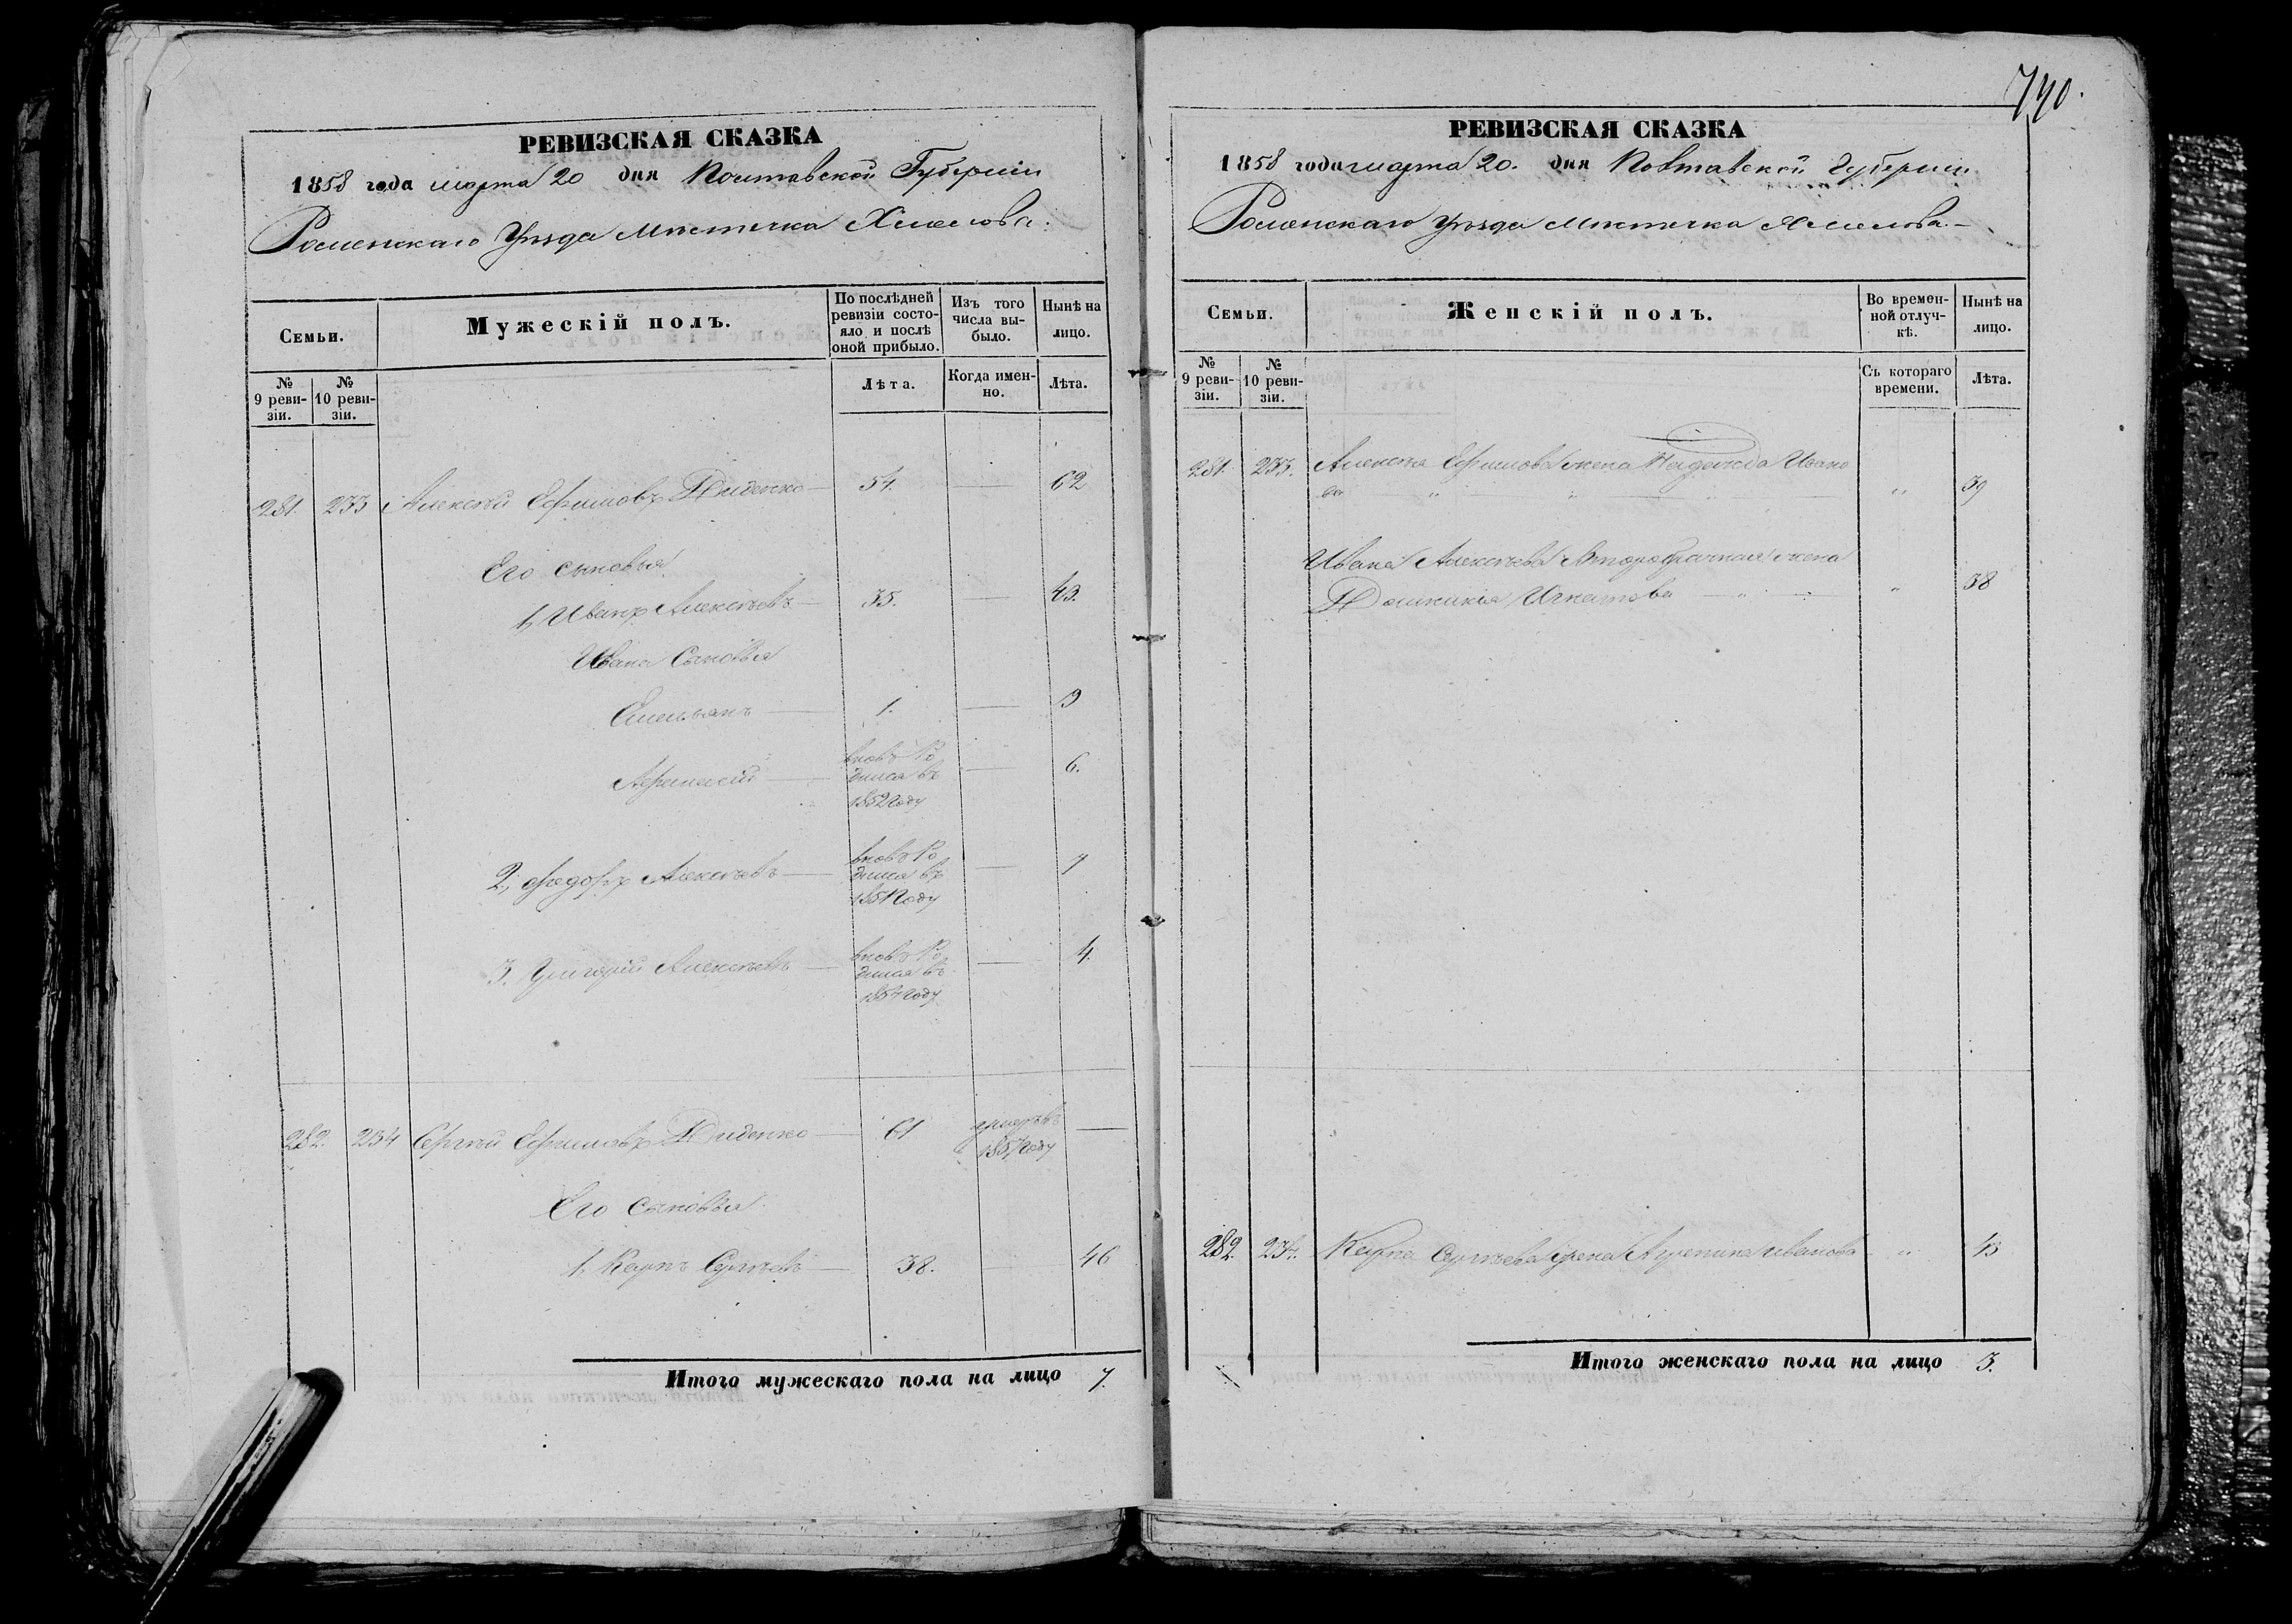 РЕВИЗСКАЯ СКАЗКА
1858 года марта 20 дня Полтавской Губерніи
Роменскаго Уѣзда Мѣстечка Хмелова.
Семьи.
Мужескій полъ.
По послѣдней ревизіи состояло и послѣ оной прибыло.
Изъ того числа выбыло.
Нынѣ на лицо.
№ 9 ревизіи.
№ 10 ревизіи.
Лѣта.
Когда именно.
Лѣта.
281. 233 Алексѣй Ефимовъ Диденко — 54. — 62
Его сыновья
1, Иванъ Алексѣевъ — 35. — 43.
Ивана Сыновья
Емельянъ — 1. — 9
Афанасій — вновь Ро
дился въ — 6.
1852 Году
2, Федоръ Алексѣевъ — вновь Ро
дился въ — 7
1851 Году
3. Григорій Алексѣевъ — вновь Ро
дился въ — 4.
1854 Году
282. 234 Сергѣй Ефимовъ Диденко — 61 умеръ въ —
1857 Году
Его Сыновья
1, Карпъ Сергѣевъ — 38. — 46
Итого мужескаго пола на лицо 7.
740.
РЕВИЗСКАЯ СКАЗКА
1858 года марта 20. дня Полтавской Губерніи
Роменскаго Уѣзда Мѣстечка Хмелова. —
Семьи.
Женскій полъ.
Во временной отлучкѣ.
Нынѣ на лицо.
№ 9 ревизіи.
№ 10 ревизіи.
Съ котораго времени.
Лѣта.
281. 233. Алексѣя Ефимова жена Надежда Ивано
ва " " " " 39
Ивана Алексѣева второбрачная жена
Домникія Игнатова — " — " 38
282. 234. Карпа Сергѣева жена Агрепина Иванова " 43
Итого женскаго пола на лицо 3.